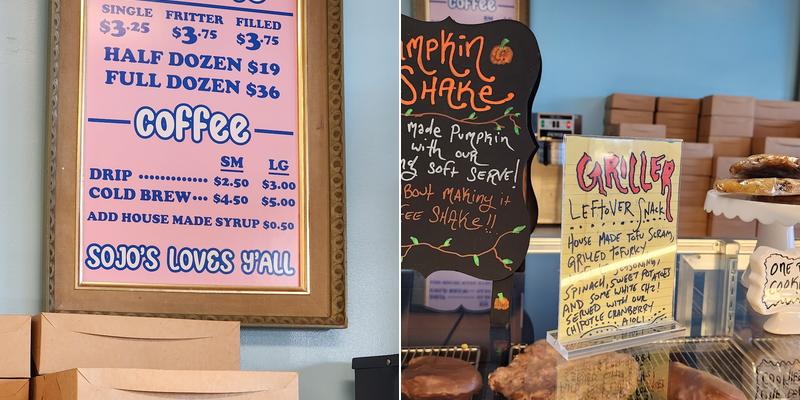 SINGLE FRITTER FILLED
$3.25 $3.75 $3.75
HALF DOZEN $19
FULL DOZEN $36
Coffee
SM LG
DRIP .............. $2.50 $3.00
COLD BREW... $4.50 $5.00
ADD HOUSE MADE SYRUP $0.50
SOJO'S LOVES Y'ALL
coffee
SHAKE
made Pumpkin
with our
soft SERVE!
Bout making it
SHAKE!!
GRILLER
LEFTOVER SNACK
HOUSE MADE TOFU SCRAM,
GRILLED TOFURKY
SEASONING,
SPINACH, SWEET POTATOES
AND SOME WHITE CHZ!
SERVED WITH OUR
CHIPOTLE CRANBERRY
AIOLI.